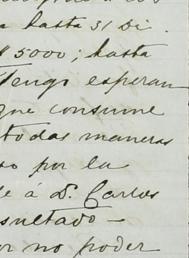 hasta 31 Di
$5000; hasta
Tengo esperan
que consume
todas maneras
so por la
e á D. Carlos
sultado —
or no poder